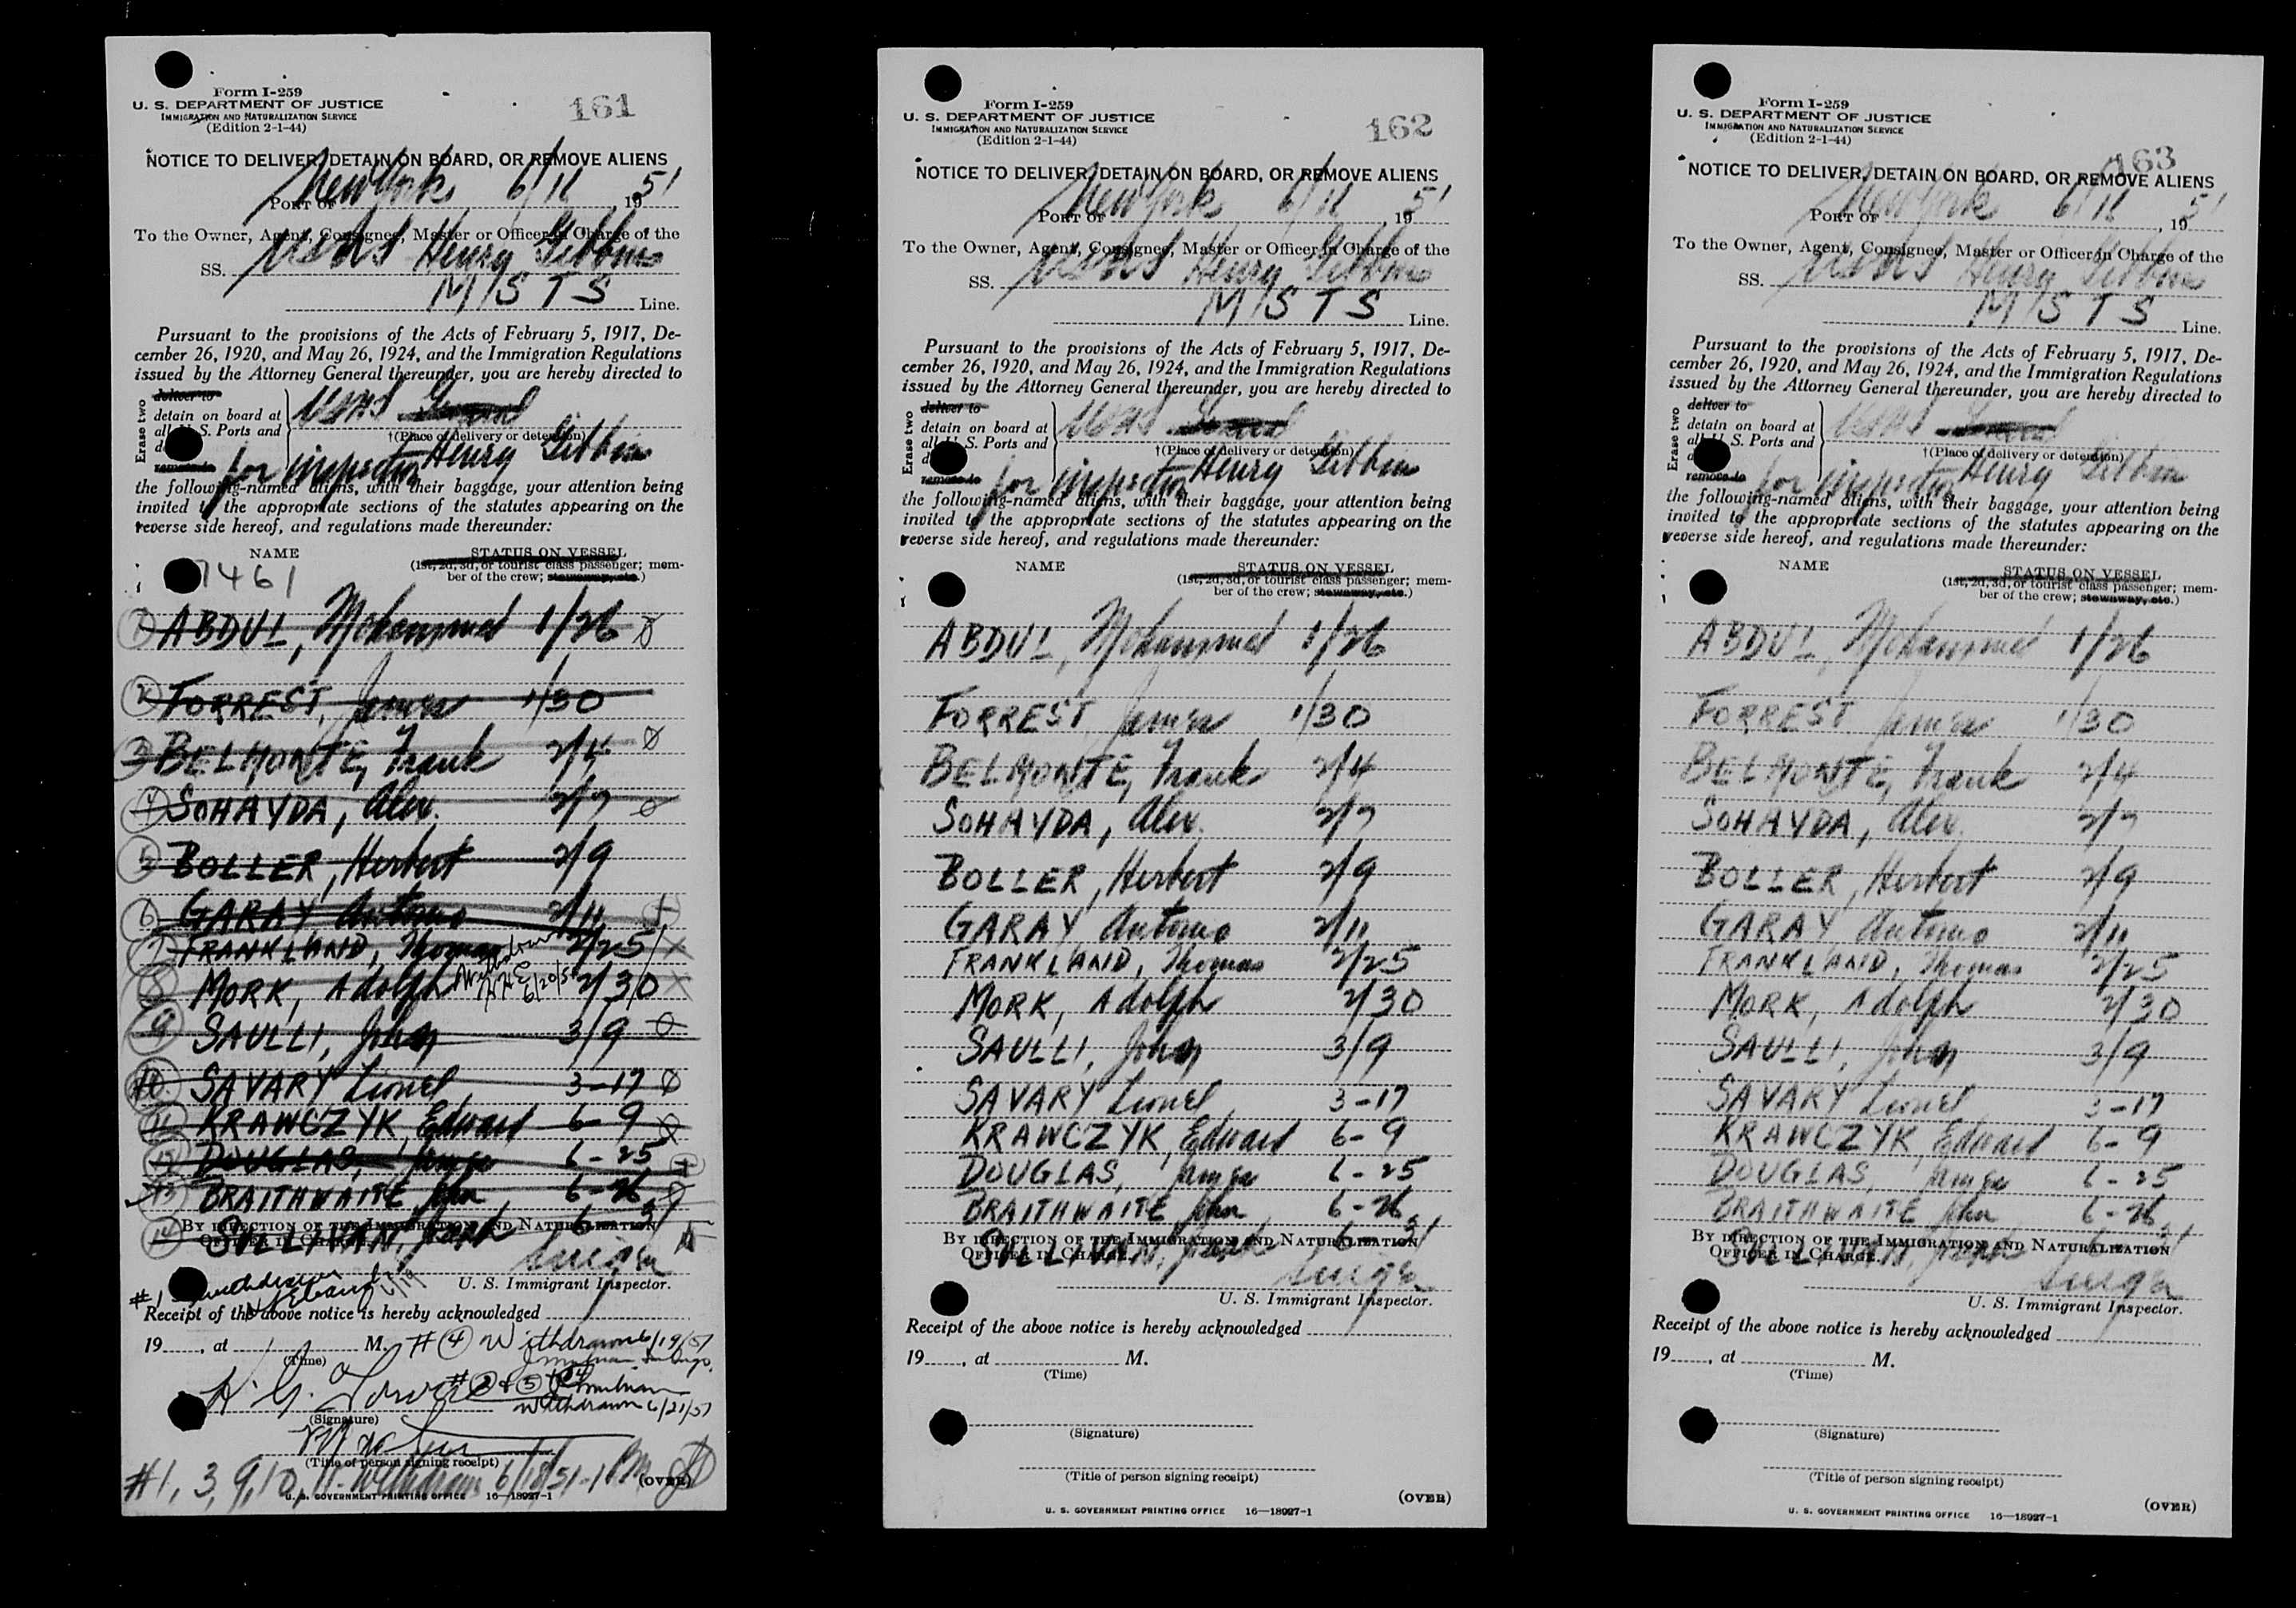 Form I-259
U. S. DEPARTMENT OF JUSTICE
IMMIGRATION AND NATURALIZATION SERVICE
(Edition 2-1-44)
161
NOTICE TO DELIVER, DETAIN ON BOARD, OR REMOVE ALIENS
PORT OF New York 6/11, 1951
To the Owner, Agent, Consignee, Master or Officer in Charge of the
SS. USNS Henry Gibbins
MSTS Line.
Pursuant to the provisions of the Acts of February 5, 1917, De-
cember 26, 1920, and May 26, 1924, and the Immigration Regulations
issued by the Attorney General thereunder, you are hereby directed to
Erase two
deliver to
detain on board at
all U. S. Ports and
remove to
USNS General
†(Place of delivery or detention)
for inspection Henry Gibbins
the following-named aliens, with their baggage, your attention being
invited to the appropriate sections of the statutes appearing on the
reverse side hereof, and regulations made thereunder:
NAME
STATUS ON VESSEL
(1st, 2d, 3d, or tourist class passenger; mem-
ber of the crew; stowaway, etc.)
7461
1 ABDUL, Mohammed 1/26
2 FORREST, James 1/30
3 BELMONTE, Frank 2/4
4 SOHAYDA, Alex. 2/7
5 BOLLER, Herbert 2/9
6 GARAY Antonio 2/11
7 FRANKLAND, Thomas 2/25
8 MORK, Adolph 2/30
6/20/51
9 SAULLI, John 3/9
10 SAVARY Lionel 3-17
11 KRAWCZYK, Edward 6-9
12 DOUGLAS, James 6-25
13 BRAITHWAITE John 6-26
14 SULLIVAN, 6-31
BY DIRECTION OF THE IMMIGRATION AND NATURALIZATION
OFFICER IN CHARGE.
U. S. Immigrant Inspector.
#1 withdrawn
Receipt of the above notice is hereby acknowledged
19 , at M. #4 Withdrawn 6/19/51
(Time)
#2 + 5 + 14
Withdrawn 6/21/51
(Signature)
(Title of person signing receipt)
#1, 3, 9, 10, 11- Withdrawn 6/18/51-
(OVER)
U. S. GOVERNMENT PRINTING OFFICE 16—18927-1
Form I-259
U. S. DEPARTMENT OF JUSTICE
IMMIGRATION AND NATURALIZATION SERVICE
(Edition 2-1-44)
162
NOTICE TO DELIVER, DETAIN ON BOARD, OR REMOVE ALIENS
PORT OF New York 6/11, 1951
To the Owner, Agent, Consignee, Master or Officer in Charge of the
SS. USNS Henry Gibbins
MSTS Line.
Pursuant to the provisions of the Acts of February 5, 1917, De-
cember 26, 1920, and May 26, 1924, and the Immigration Regulations
issued by the Attorney General thereunder, you are hereby directed to
Erase two
deliver to
detain on board at
all U. S. Ports and
remove to
USNS General
†(Place of delivery or detention)
for inspection Henry Gibbins
the following-named aliens, with their baggage, your attention being
invited to the appropriate sections of the statutes appearing on the
reverse side hereof, and regulations made thereunder:
NAME
STATUS ON VESSEL
(1st, 2d, 3d, or tourist class passenger; mem-
ber of the crew; stowaway, etc.)
ABDUL, Mohammed 1/26
FORREST, James 1/30
BELMONTE, Frank 2/4
SOHAYDA, Alex. 2/7
BOLLER, Herbert 2/9
GARAY Antonio 2/11
FRANKLAND, Thomas 2/25
MORK, Adolph 2/30
SAULLI, John 3/9
SAVARY Lionel 3-17
KRAWCZYK, Edward 6-9
DOUGLAS, James 6-25
BRAITHWAITE John 6-26
SULLIVAN, 6-31
BY DIRECTION OF THE IMMIGRATION AND NATURALIZATION
OFFICER IN CHARGE.
U. S. Immigrant Inspector.
Receipt of the above notice is hereby acknowledged
19 , at M.
(Time)
(Signature)
(Title of person signing receipt)
(OVER)
U. S. GOVERNMENT PRINTING OFFICE 16—18927-1
Form I-259
U. S. DEPARTMENT OF JUSTICE
IMMIGRATION AND NATURALIZATION SERVICE
(Edition 2-1-44)
163
NOTICE TO DELIVER, DETAIN ON BOARD, OR REMOVE ALIENS
PORT OF New York 6/11, 1951
To the Owner, Agent, Consignee, Master or Officer in Charge of the
SS. USNS Henry Gibbins
MSTS Line.
Pursuant to the provisions of the Acts of February 5, 1917, De-
cember 26, 1920, and May 26, 1924, and the Immigration Regulations
issued by the Attorney General thereunder, you are hereby directed to
Erase two
deliver to
detain on board at
all U. S. Ports and
remove to
USNS General
†(Place of delivery or detention)
for inspection Henry Gibbins
the following-named aliens, with their baggage, your attention being
invited to the appropriate sections of the statutes appearing on the
reverse side hereof, and regulations made thereunder:
NAME
STATUS ON VESSEL
(1st, 2d, 3d, or tourist class passenger; mem-
ber of the crew; stowaway, etc.)
ABDUL, Mohammed 1/26
FORREST James 1/30
BELMONTE, Frank 2/4
SOHAYDA, Alex. 2/7
BOLLER, Herbert 2/9
GARAY Antonio 2/11
FRANKLAND, Thomas 2/25
MORK, Adolph 2/30
SAULLI, John 3/9
SAVARY Lionel 3-17
KRAWCZYK, Edward 6-9
DOUGLAS, James 6-25
BRAITHWAITE John 6-26
SULLIVAN, 6-31
BY DIRECTION OF THE IMMIGRATION AND NATURALIZATION
OFFICER IN CHARGE.
U. S. Immigrant Inspector.
Receipt of the above notice is hereby acknowledged
19 , at M.
(Time)
(Signature)
(Title of person signing receipt)
(OVER)
U. S. GOVERNMENT PRINTING OFFICE 16—18927-1